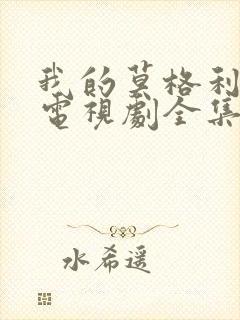 我的莫格利
電視劇全集
水希遥